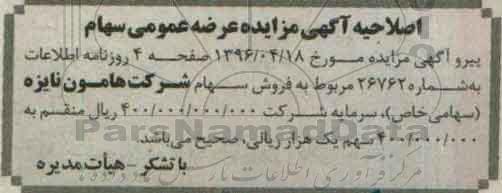 اصلاحیه آگهی مزایده عرضه عمومی سهام
پیرو آگهی مزایده مورخ ۱۳۹۶/۰۴/۱۸ صفحه ۴ روزنامه اطلاعات
به شماره ۲۶۷۶۲ مربوط به فروش سهام شرکت هامون نایزه
(سهامی خاص)، سرمایه شرکت ۴۰۰/۰۰۰/۰۰۰/۰۰۰ ریال منقسم به
۴۰۰/۰۰۰/۰۰۰ سهم یک هزار ریالی، صحیح می‌باشد.
با تشکر - هیأت مدیره
ParsNamadData